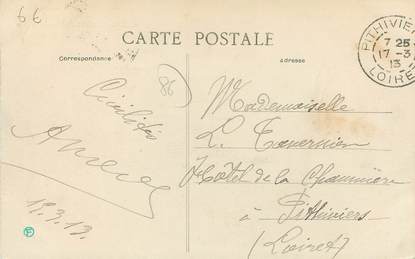 66
CARTE POSTALE
Correspondance
Adresse
86
PITHIVIERS
7 25
17-3
13
LOIRET
Mademoiselle
L. Tavernier
Hôtel de la Chaumière
à Pithiviers
(Loiret)
Civilités
17.3.13.